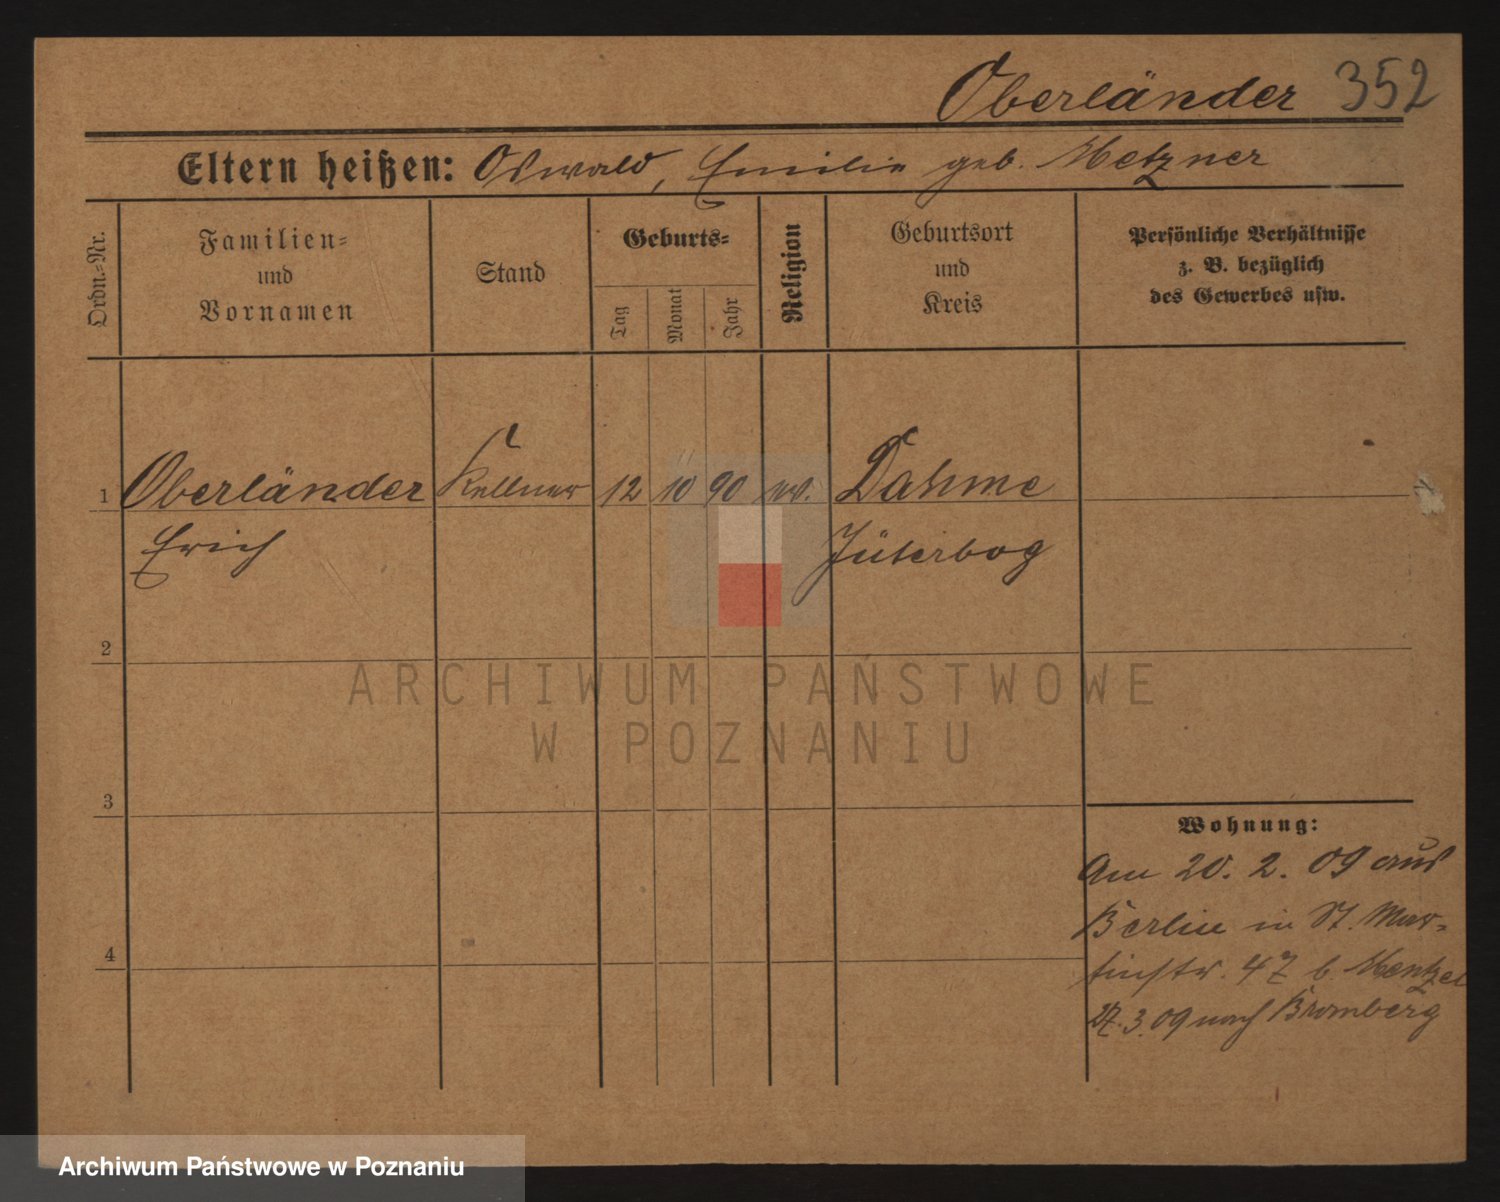 Oberländer 352
Eltern heißen: Oswald, Emilie geb. Metzner
Ordn.-Nr.
Familien-
und
Vornamen
Stand
Geburts-
Tag
Monat
Jahr
Religion
Geburtsort
und
Kreis
Persönliche Verhältnisse
z. B. bezüglich
des Gewerbes usw.
1 Oberländer Kellner 12 10 90 ev. Dahme
Erich Jüterbog
2
3
4
Wohnung:
Am 20. 2. 09 aus
Berlin in St. Mar-
tinstr. 47 b. Mentzel
27. 3. 09 nach Bromberg
ARCHIWUM PAŃSTWOWE
W POZNANIU
Archiwum Państwowe w Poznaniu